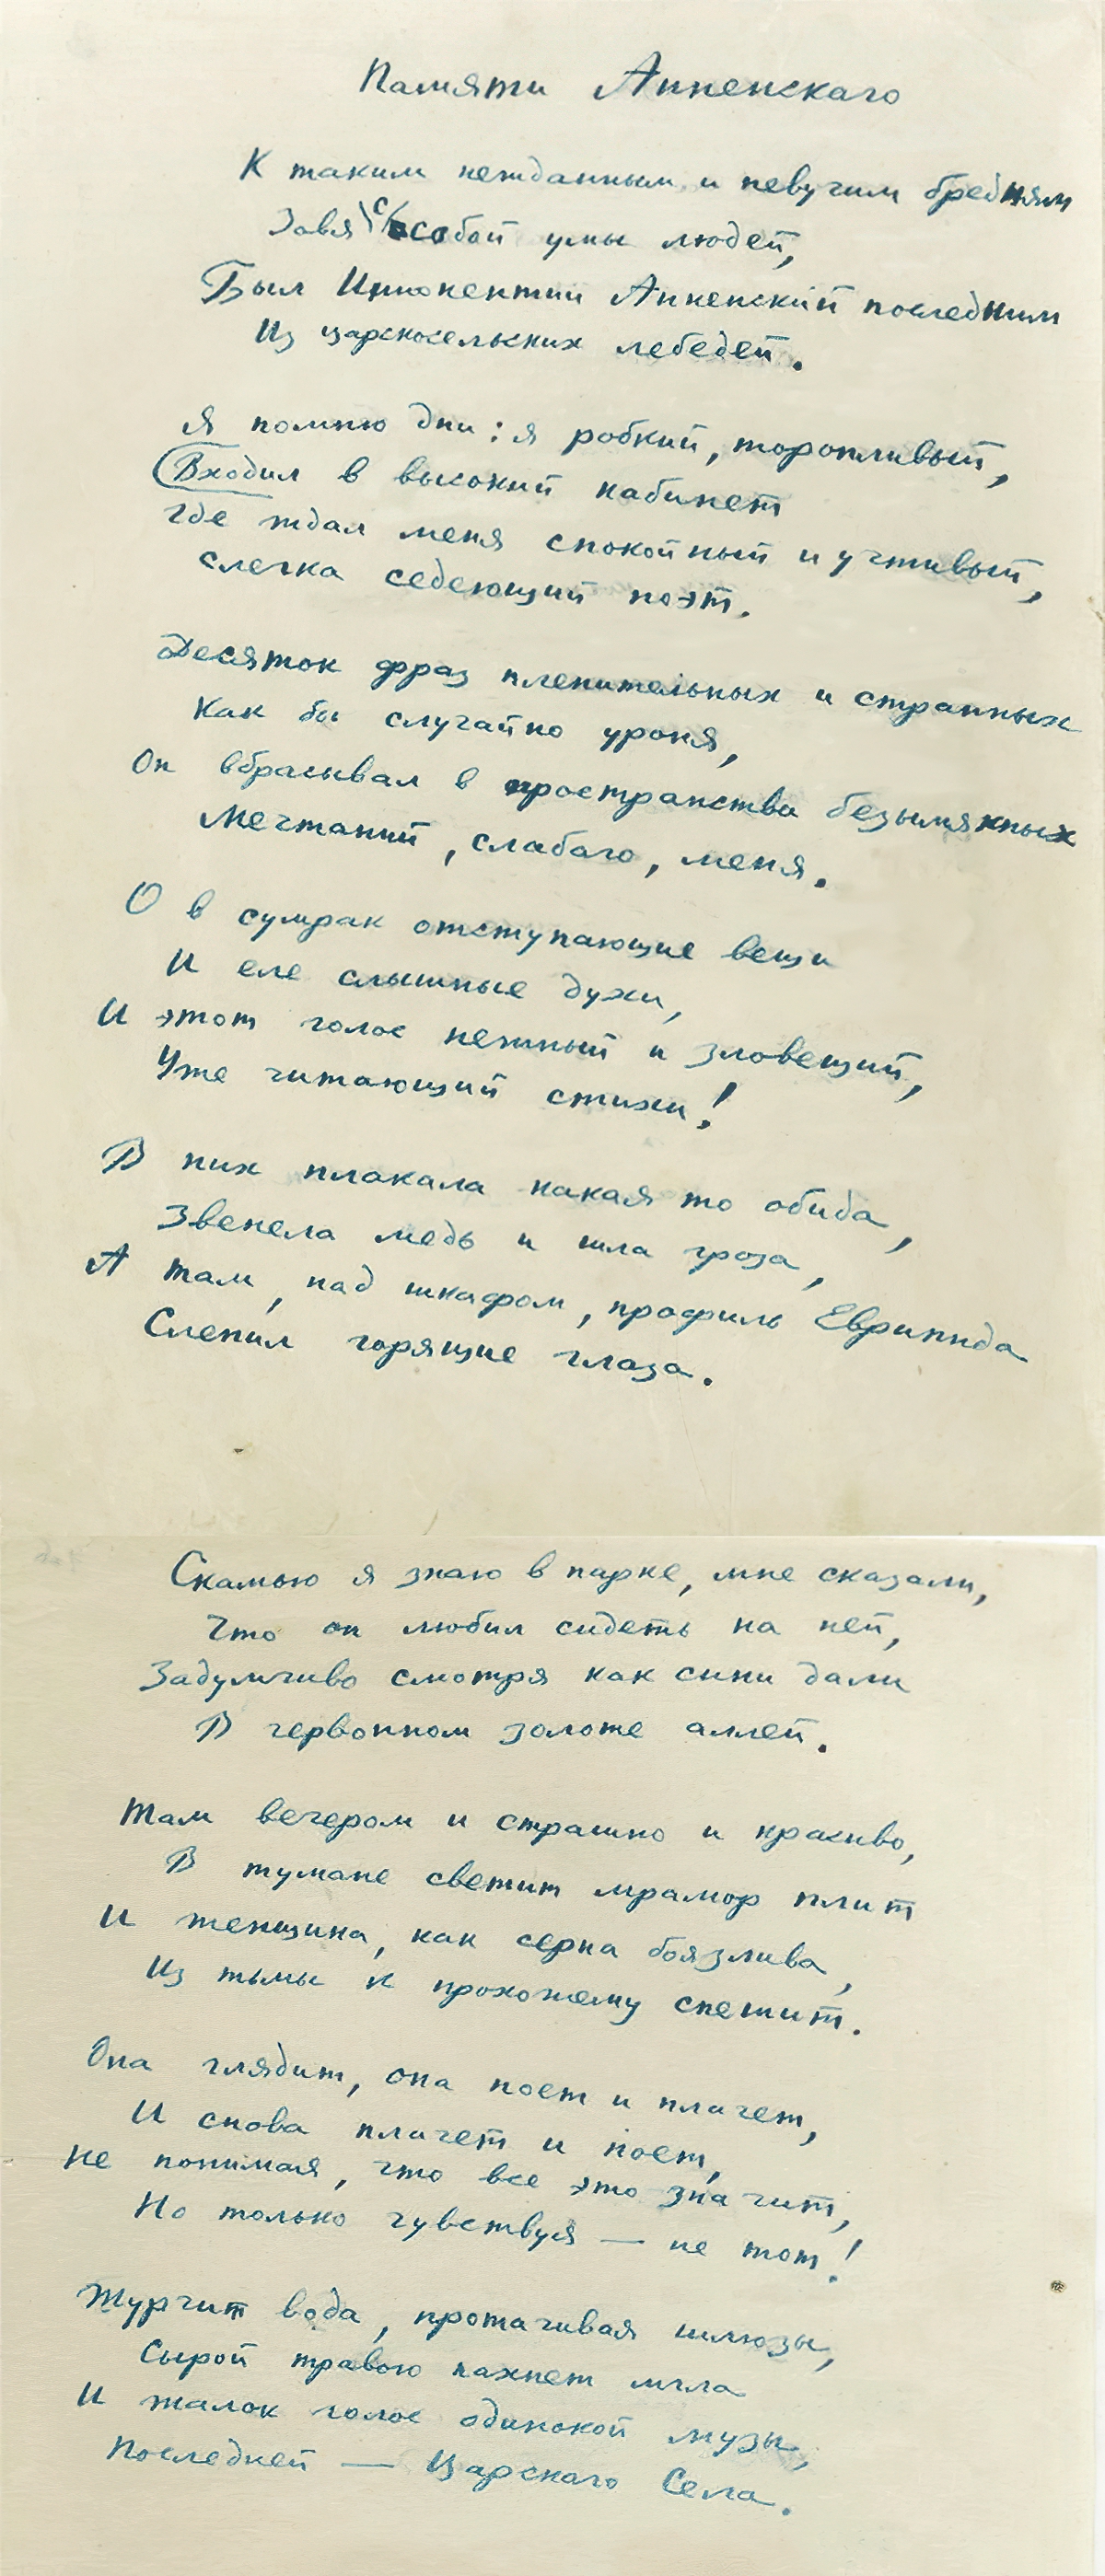 Памяти Анненскаго
К таким нежданным и певучим бредням
Зовя с собой умы людей,
Был Иннокентий Анненский последним
Из царскосельских лебедей.
Я помню дни: я робкий, торопливый,
Входил в высокий кабинет
Где ждал меня спокойный и учтивый,
Слегка седеющий поэт.
Десяток фраз пленительных и странных
Как бы случайно уроня,
Он вбрасывал в пространства безымянных
Мечтаний, слабаго, меня.
О в сумрак отступающие вещи
И еле слышные духи,
И этот голос нежный и зловещий,
Уже читающий стихи!
В них плакала какая то обида,
Звенела медь и шла гроза,
А там, над шкафом, профиль Еврипида
Слепил горящие глаза.
Скамью я знаю в парке, мне сказали,
Что он любил сидеть на ней,
Задумчиво смотря как сини дали
В червонном золоте аллей.
Там вечером и страшно и красиво,
В тумане светит мрамор плит
И женщина, как серна боязлива,
Из тьмы к прохожему спешит.
Она глядит, она поет и плачет,
И снова плачет и поет,
Не понимая, что все это значит,
Но только чувствуя — не тот!
Журчит вода, протачивая шлюзы,
Сырой травою пахнет мгла
И жалок голос одинокой музы,
Последней — Царскаго Села.